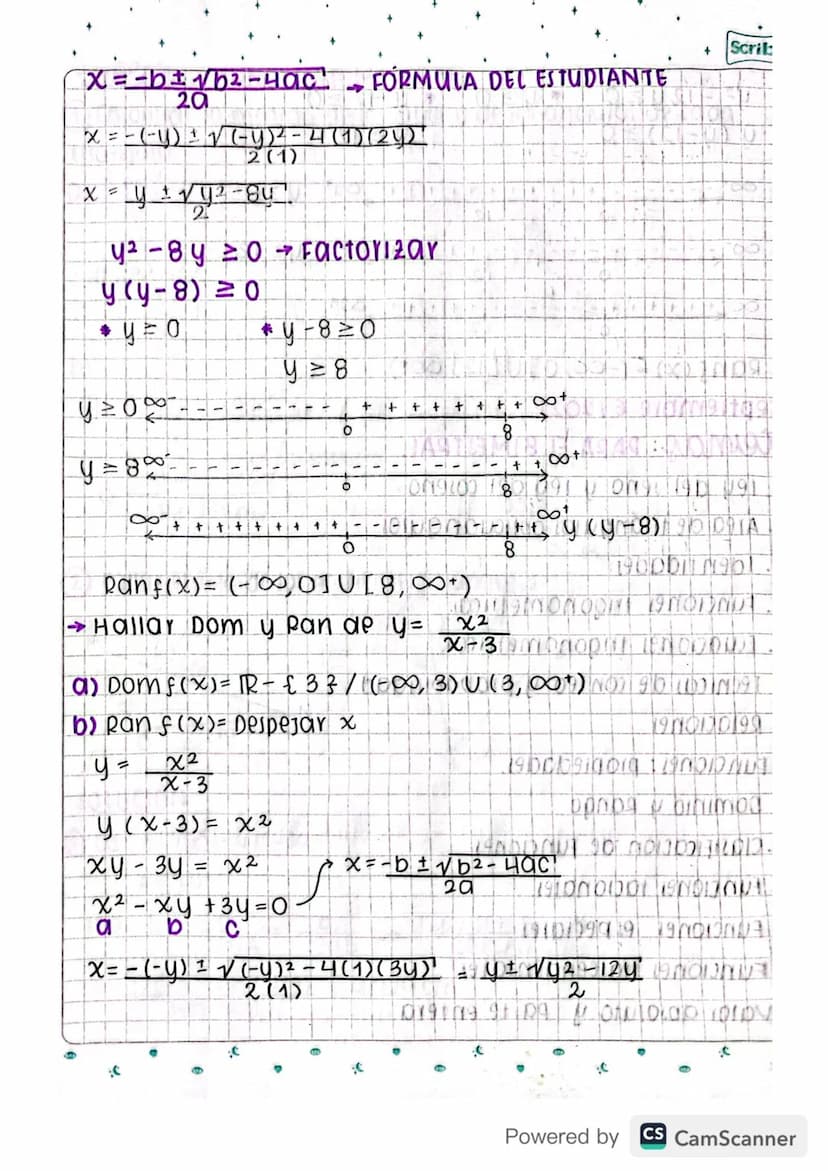 Scrib
x = -b ± √b² - 4ac / 2a → FÓRMULA DEL ESTUDIANTE
x = -(-y) ± √(-y)² - 4(1)(2y) / 2(1)
x = y ± √y² - 8y / 2
y² - 8y ≥ 0 → Factorizar
y(y-8) ≥ 0
* y ≥ 0 * y - 8 ≥ 0
y ≥ 8
y ≥ 0 ∞⁻ - - - - - - - - - - + + + + + + + + ∞⁺
0 8
y ≥ 8 ∞⁻ - - - - - - - - - - - - - - - - - + + ∞⁺
0 8
∞⁻ + + + + + + + + + - - - - - - - - + + ∞⁺ y(y-8)
0 8
Ran f(x) = (-∞, 0] U [8, ∞⁺)
→ Hallar Dom y Ran de y = x² / x-3
a) Dom f(x) = ℝ - {3} / (-∞, 3) U (3, ∞⁺)
b) Ran f(x) = Despejar x
y = x² / x-3
y(x-3) = x²
xy - 3y = x² x = -b ± √b² - 4ac / 2a
x² - xy + 3y = 0
a b c
x = -(-y) ± √(-y)² - 4(1)(3y) / 2(1) = y ± √y² - 12y / 2
Powered by CS CamScanner